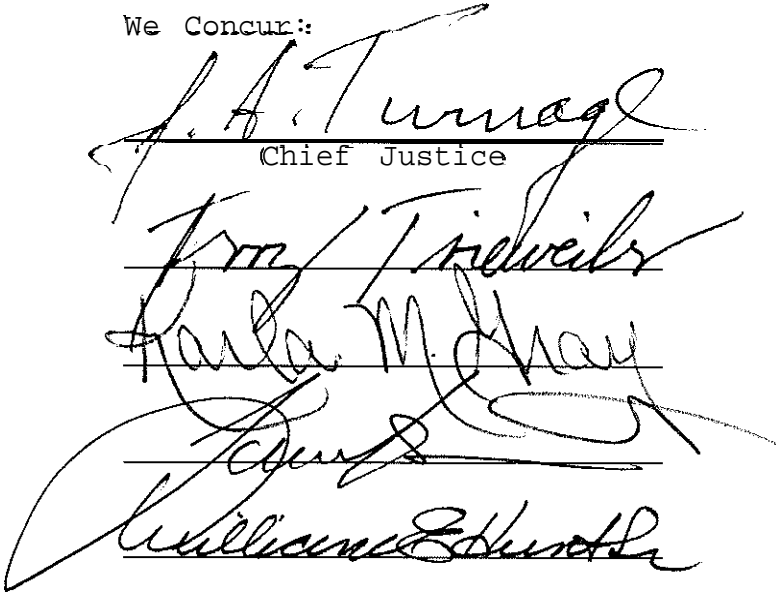 We Concur:
J. A. Turnage
Chief Justice
Terry Trieweiler
Karla M. Gray
William E Hunt Sr